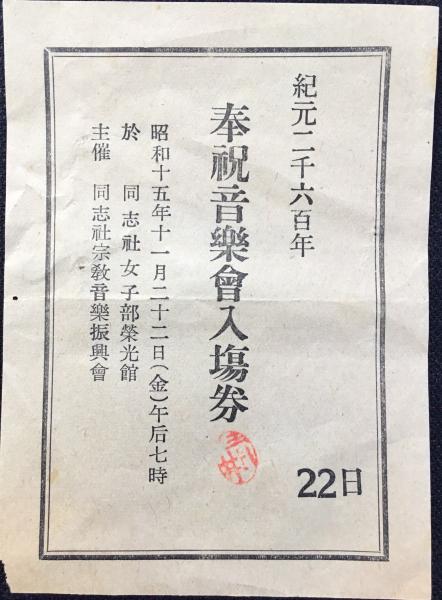 紀元二千六百年
奉祝音樂會入塲券
昭和十五年十一月二十二日(金)午后七時
於 同志社女子部榮光館
主催 同志社宗教音樂振興會
22日